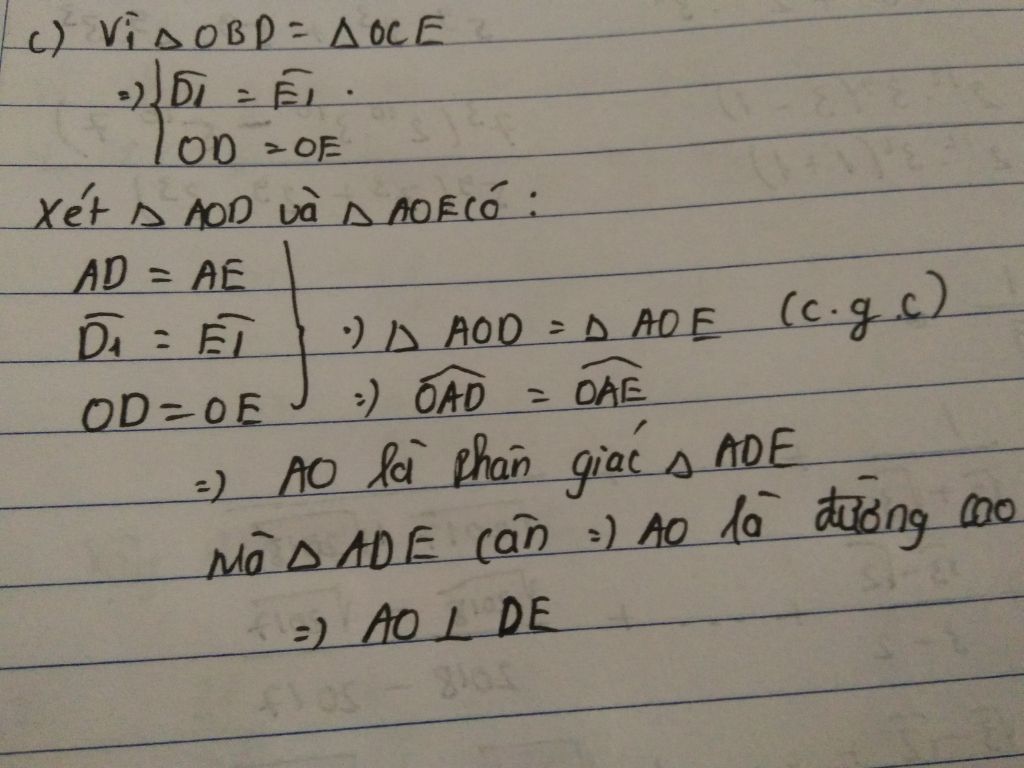 c) Vì △OBD = △OCE
=> { D̂1 = Ê1 .
OD = OE
Xét △ AOD và △ AOE có :
AD = AE
D̂1 = Ê1 } => △ AOD = △ AOE (c.g.c)
OD = OE => OAD = OAE
=> AO là phân giác △ ADE
Mà △ ADE cân => AO là đường cao
=> AO ⊥ DE